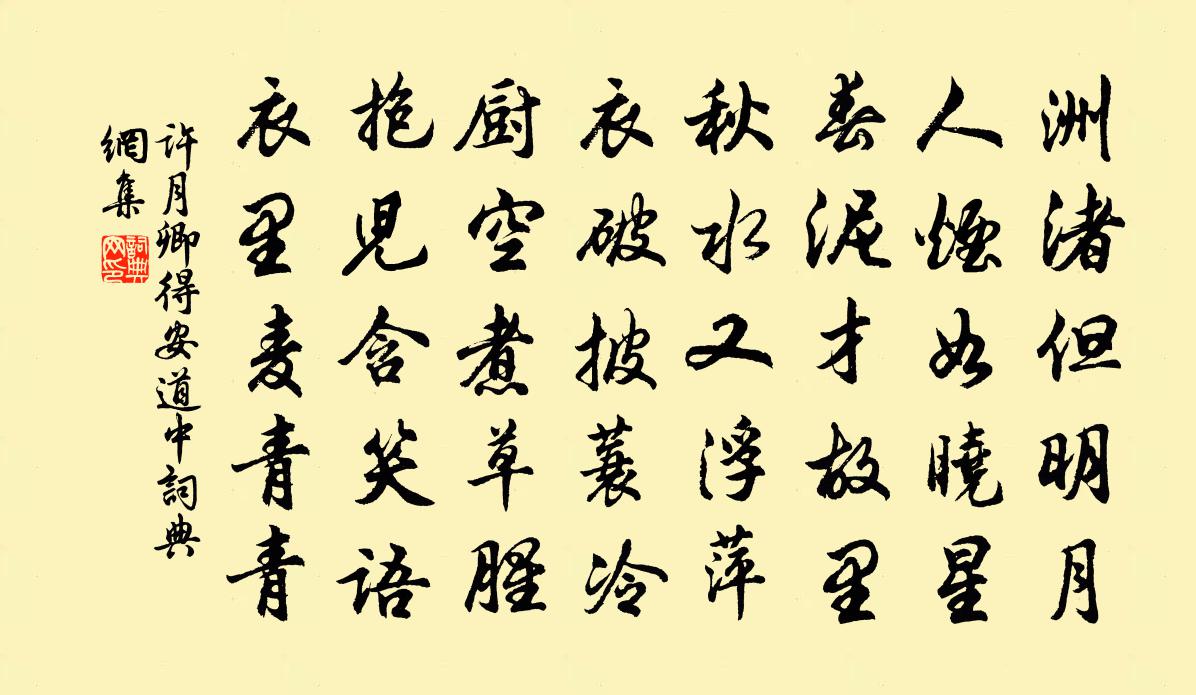 洲渚但明月
人煙如曉星
春泥才故里
秋水又浮萍
衣破披蓑冷
厨空煮草腥
抱児含笑語
衣里麦青青
許月卿得安道中詞典
網集
詞典
网印